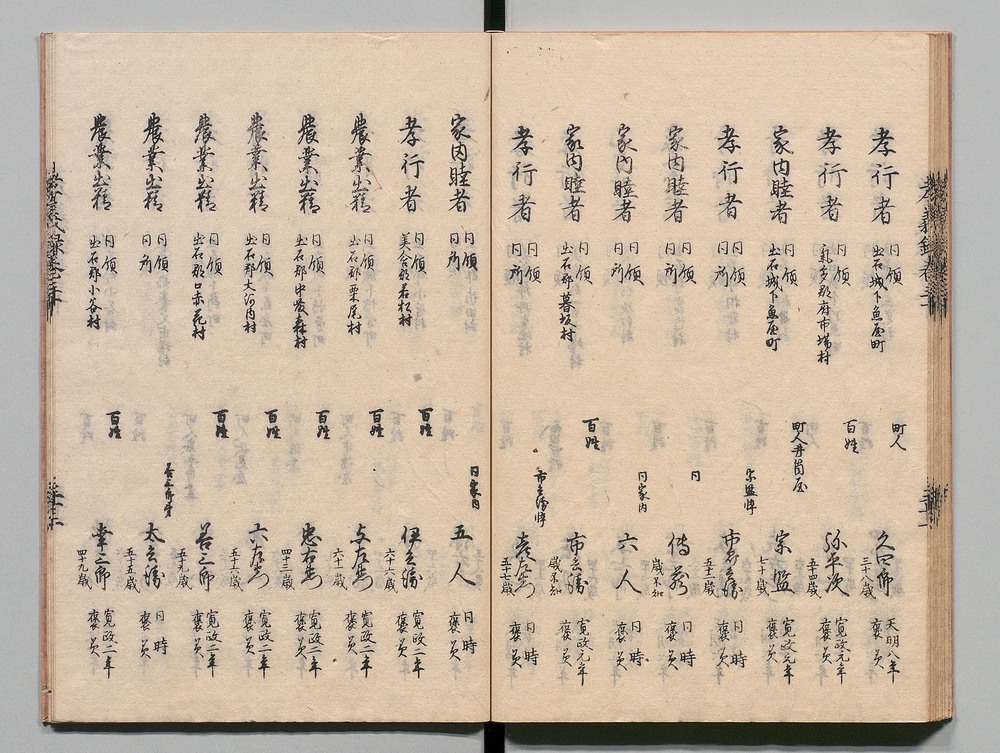 孝行者 同領 出石城下魚屋町 町人 久四郎 三十八歳 天明八年 褒美
孝行者 同領 気多郡府市場村 百姓 弥平次 五十四歳 寛政元年 褒美
家内睦者 同領 出石城下魚屋町 町人井筒屋 宗監 七十歳 寛政元年 褒美
孝行者 同領 同所 宗監悴 五十二歳 同時 褒美
家内睦者 同領 同所 同 歳不知 同時 褒美
家内睦者 同領 同所 同家内 六人 同時 褒美
家内睦者 同領 出石郡暮坂村 百姓 市兵衛 歳不知 寛政元年 褒美
孝行者 同領 同所 市兵衛悴 五十七歳 同時 褒美
家内睦者 同領 同所 同家内 五人 同時 褒美
孝行者 同領 美含郡若松村 百姓 伊兵衛 六十一歳 寛政二年 褒美
農業出精 同領 出石郡栗尾村 百姓 与左衛門 六十一歳 寛政二年 褒美
農業出精 同領 出石郡中藤森村 百姓 忠右衛門 四十三歳 寛政二年 褒美
農業出精 同領 出石郡大河内村 百姓 六左衛門 五十六歳 寛政二年 褒美
農業出精 同領 出石郡口赤花村 百姓 善三郎 五十九歳 寛政二年 褒美
農業出精 同領 同所 善三郎弟 太兵衛 五十五歳 同時 褒美
農業出精 同領 出石郡小谷村 百姓 幸三郎 四十九歳 寛政二年 褒美